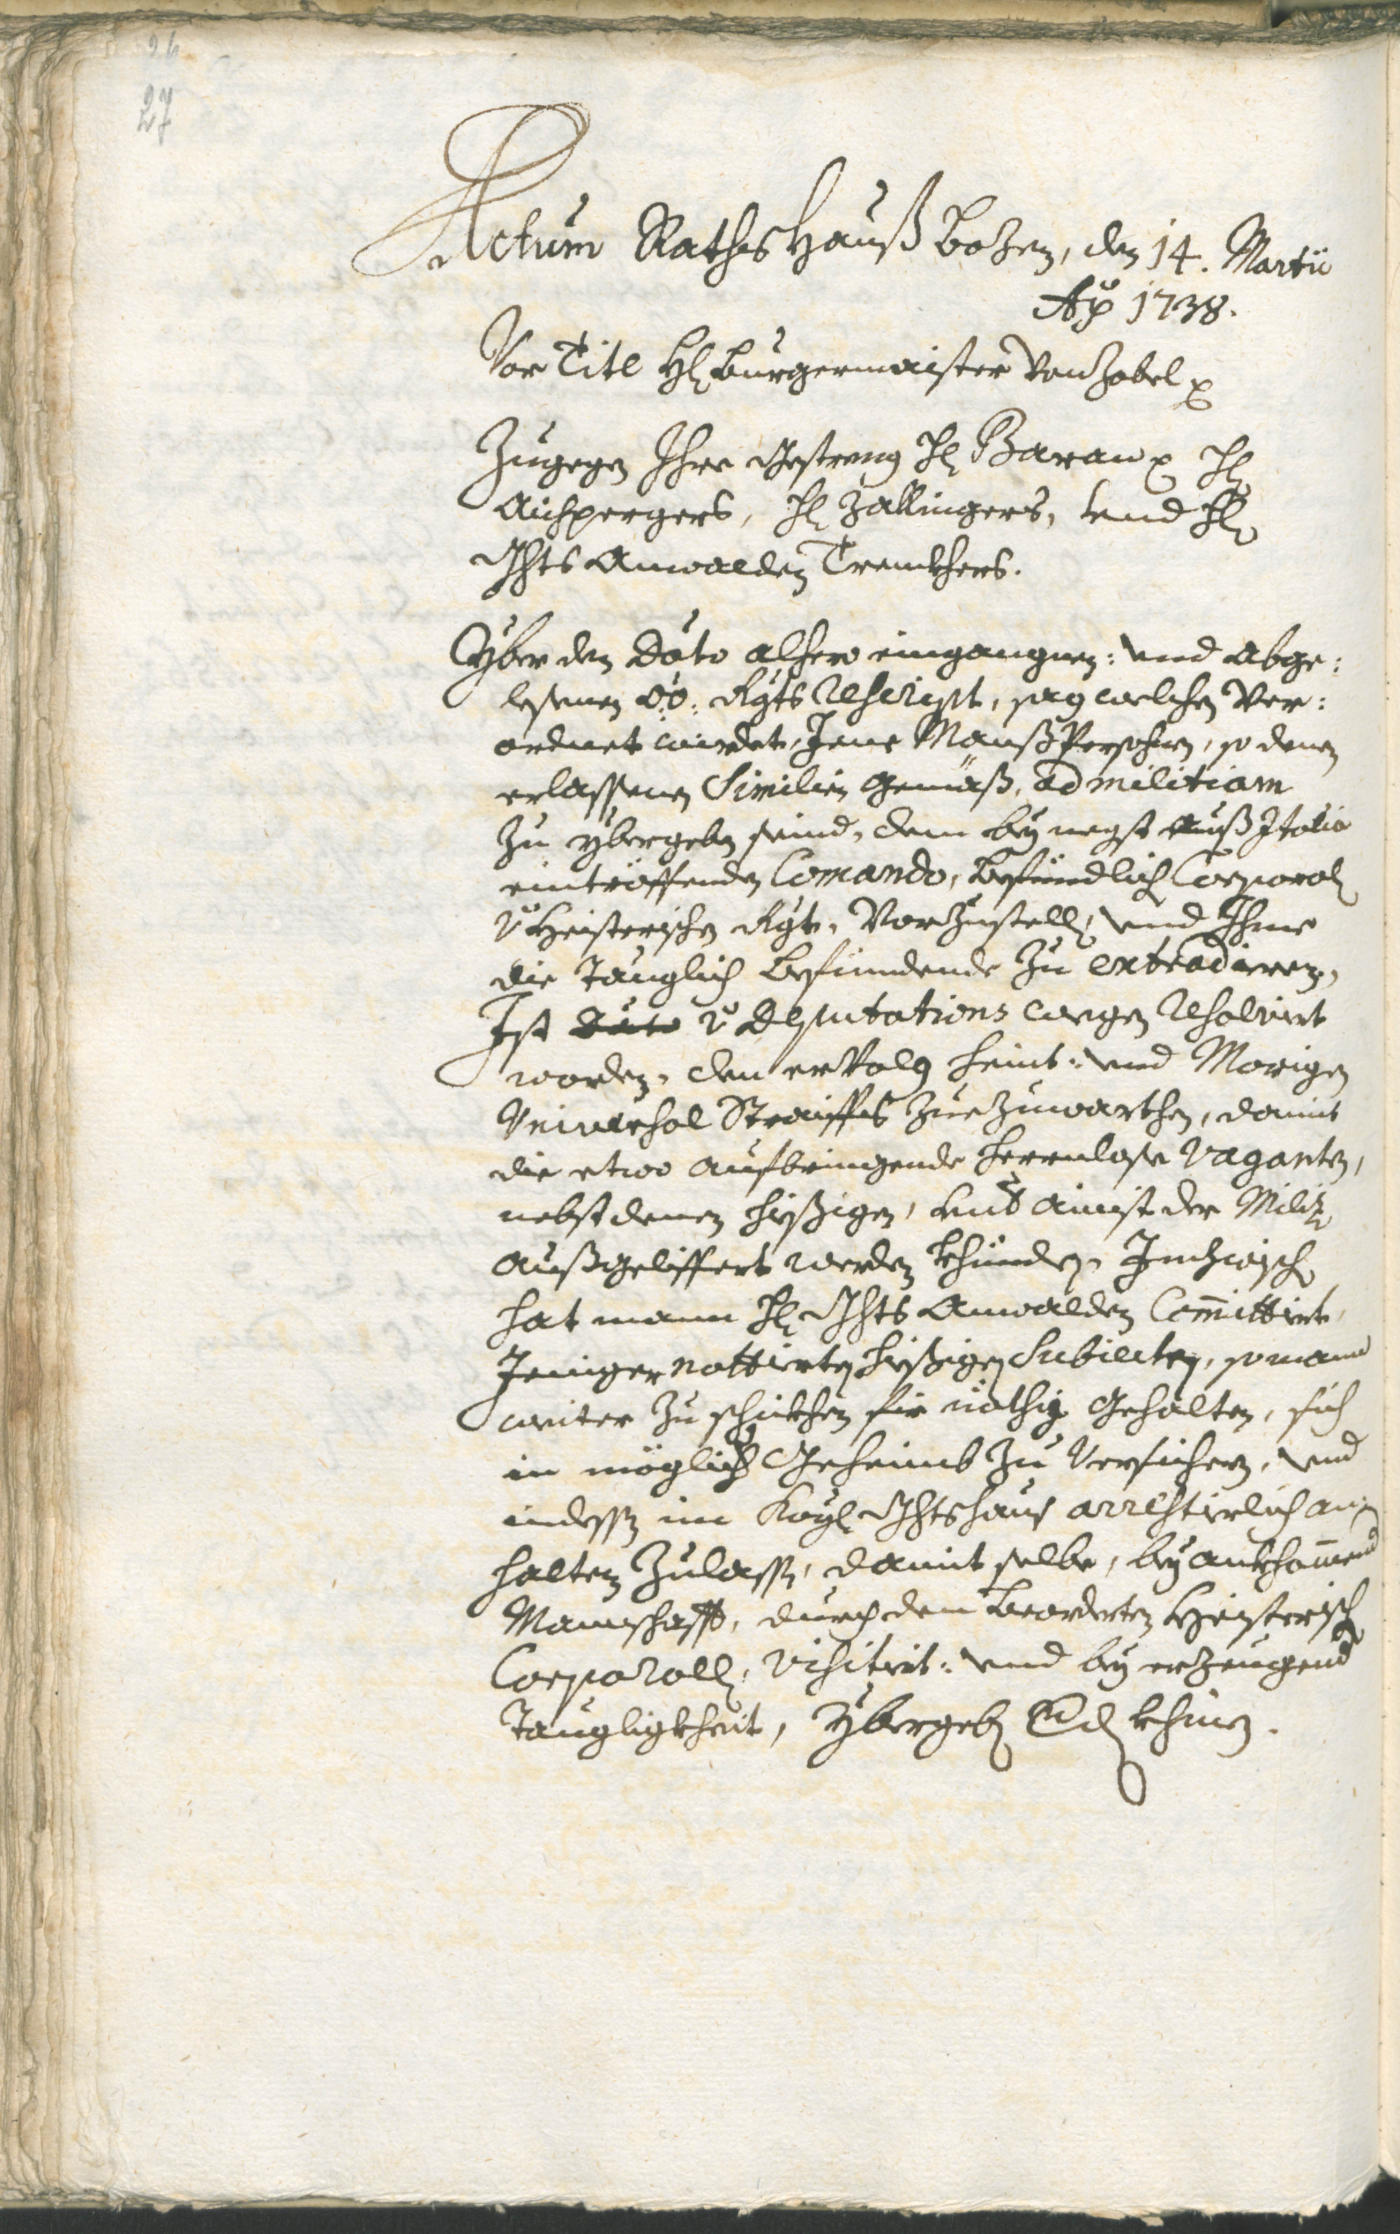 27
Actum Rathshauß Bozen, den 14. Martii
Ao 1738.
Vor Titl Hl Burgermaister Von Zobel
Zugegen Ihre Gestreng Hl Baran Hl
Aichpergers, Hl Zallingers, vnd Hl
Ghts Anwalden Trenkhers.
Yber den Dato alhero eingangnen: vnd Abge:
lesenen oö. Rgts Rescript, sag welchen Ver:
ordnet wirdet, Jene Manß Persohnen, so denen
erlassenen Similien Gemäß, ad militiam
zu ybergeben seind, dem bey negst auß Italia
eintröffenden Comando, befündlich Corporal
v Heisterischen Rgt, Vorzustell, vnd Ihme
die tauglich befundende zu extradieren,
Ist v Deputations wegen Resolviert
worden, den erVolg heint: vnd Morigen
Universal Straiffs zuezuwarthen, damit
die etwo aufbringende herrnlose Vaganten,
nebst denen hießigen, der Miliz
außgeliffert werden khünden, Inzwisch
hat mann Hl Ghts Anwalden Committiert,
Jeniger nottierten hießigen Subiecten, so mann
weiter zu schickhen für nöthig Gehalten, sich
in möglich Geheimb zu Versichern, vnd
indessen im Kayl Ghtshaus arrestierlich an:
halten zulassen, damit selbe, bey ankhommend
Mannschafft, durch den beorderten Heisterisch
Corporalln, visitirt: vnd bey erzeugend
Taugligkheit, ybergeben khünen.